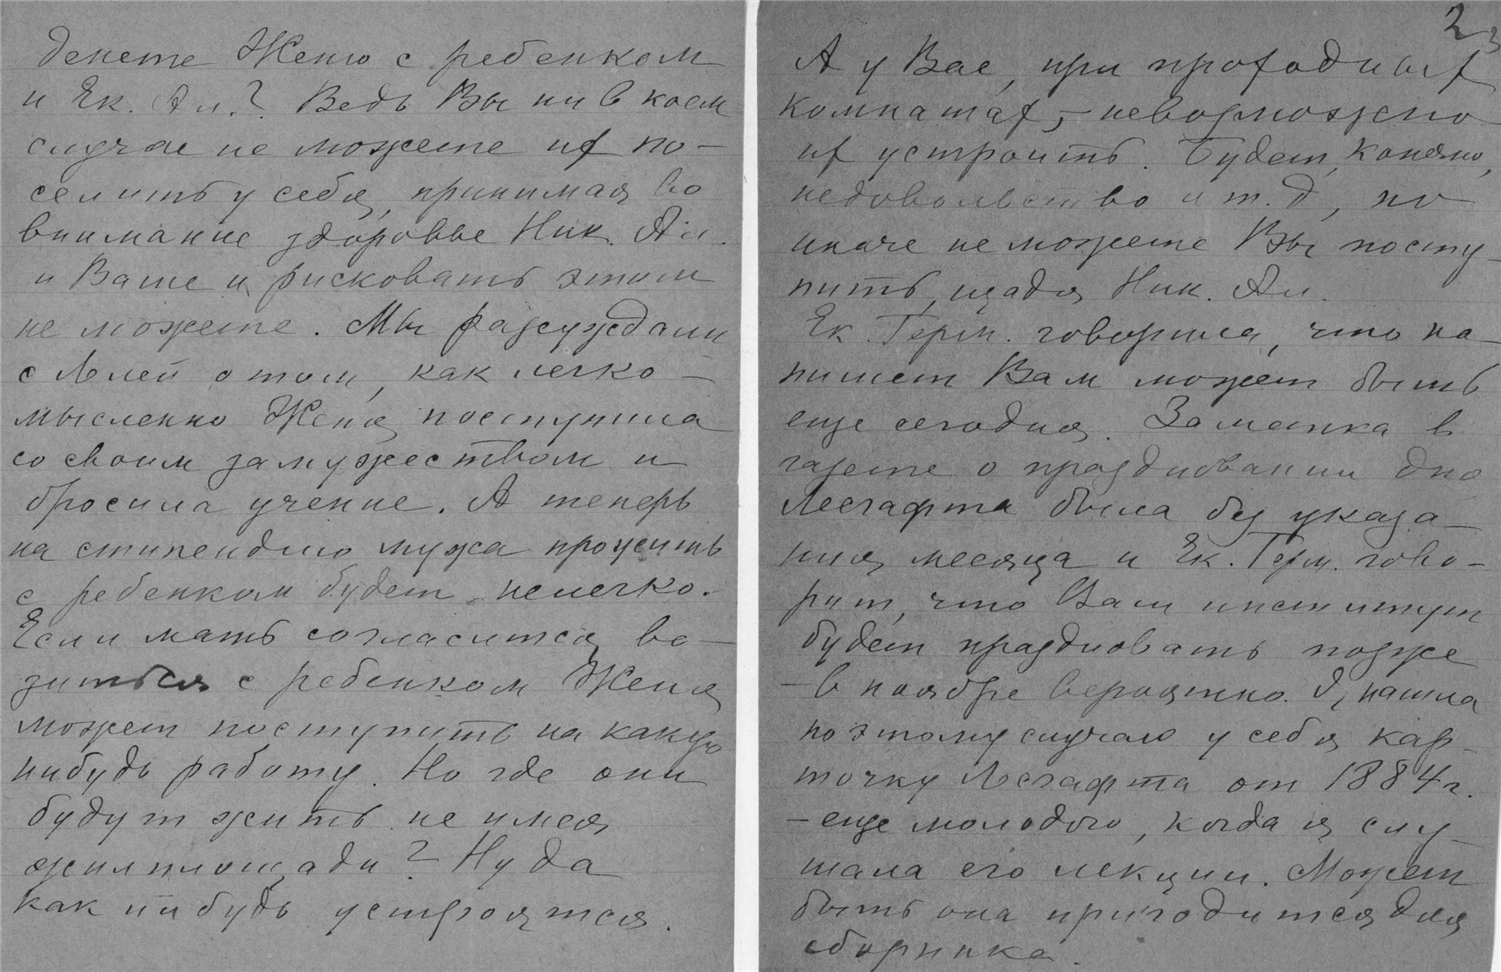 денете Женю с ребенком
и Ек. Ал.? Ведь Вы ни в коем
случае не можете их по-
селить у себя, принимая во
внимание здоровье Ник. Ал.
и Ваше и рисковать этим
не можете. Мы рассуждали
с Лелей о том, как легко-
мысленно Женя поступила
со своим замужеством и
бросила учение. А теперь
на стипендию мужа прожить
с ребенком будет нелегко.
Если мать согласится во-
зиться с ребенком Женя
может поступить на какую
нибудь работу. Но где они
будут жить не имея
жилплощади? Ну да
как нибудь устроятся.
2
А у Вас, при проходных
комнатах, - невозможно
их устроить. Будет, конечно,
недовольство и т.д, но
иначе не можете Вы посту-
пить, щадя Ник. Ал.
Ек. Герм. говорила, что на-
пишет Вам может быть
еще сегодня. Заметка в
газете о праздновании дня
Лесгафта была без указа-
ния месяца и Ек. Герм. гово-
рит, что Ваш институт
будет праздновать позже
- в ноябре вероятно. Я нашла
по этому случаю у себя кар-
точку Лесгафта от 1884 г.
- еще молодого, когда я слу-
шала его лекции. Может
быть она пригодится для
сборника.